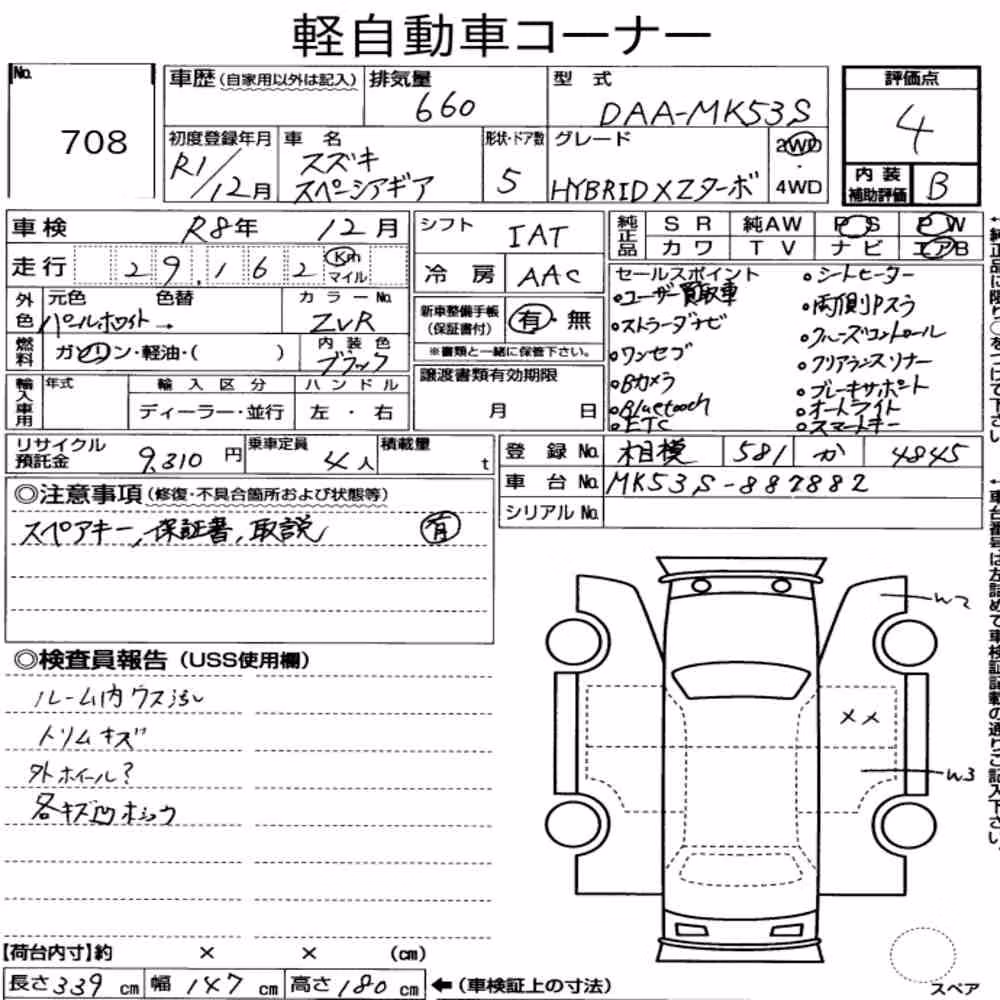 軽自動車コーナー
No.
708
車歴(自家用以外は記入) 排気量 660 型 式 DAA-MK53S
評価点
4
内装補助評価 B
初度登録年月 R1/12月 車 名 スズキ スペーシアギア 形状・ドア数 5 グレード HYBRID XZターボ 2WD・4WD
車検 R8年 12月
走行 29,162 Km マイル
外色 元色 色替 カラーNo.
パールホワイト→ ZVR
燃料 ガソリン・軽油・( ) 内装色 ブラック
輸入車用 年式 輸入区分 ハンドル
ディーラー・並行 左・右
シフト IAT
冷房 AAC
新車整備手帳(保証書付) 有・無
※書類と一緒に保管下さい。
譲渡書類有効期限
月 日
純正品 SR 純AW PS PW
カワ TV ナビ エアB
セールスポイント
・ユーザー買取車
・ストラーダナビ
・ワンセグ
・Bカメラ
・Bluetooth
・ETC
・シートヒーター
・両側Pスラ
・クルーズコントロール
・クリアランスソナー
・ブレーキサポート
・オートライト
・スマートキー
リサイクル預託金 9,310円 乗車定員 4人 積載量 t
登録No. 相模 581 か 4845
車台No. MK53S-887882
シリアルNo.
◎注意事項(修復・不具合箇所および状態等)
スペアキー,保証書,取説 有
◎検査員報告(USS使用欄)
ルーム内ウス汚レ
トリムキズ
外ホイール?
各キズ凹ホシュウ
W2
XX
W3
スペア
【荷台内寸】約 × × (cm)
長さ339cm 幅147cm 高さ180cm ←(車検証上の寸法)
←純正品に限り○をつけて下さい
←車台番号は左詰めで車検証記載の通りご記入下さい。